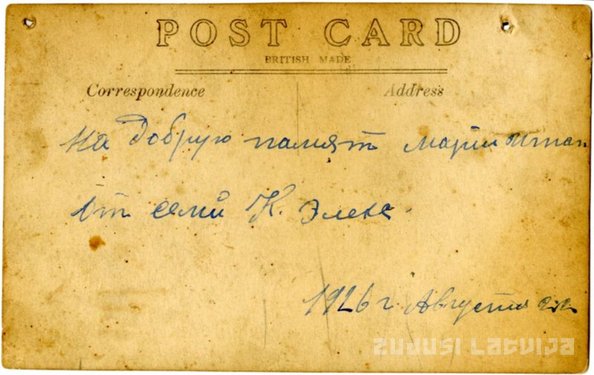 POST CARD
BRITISH MADE
Correspondence Address
На добрую памят Марти
От семи К. Элекс
1926 г Августа
ZUDUSI LATVIJA